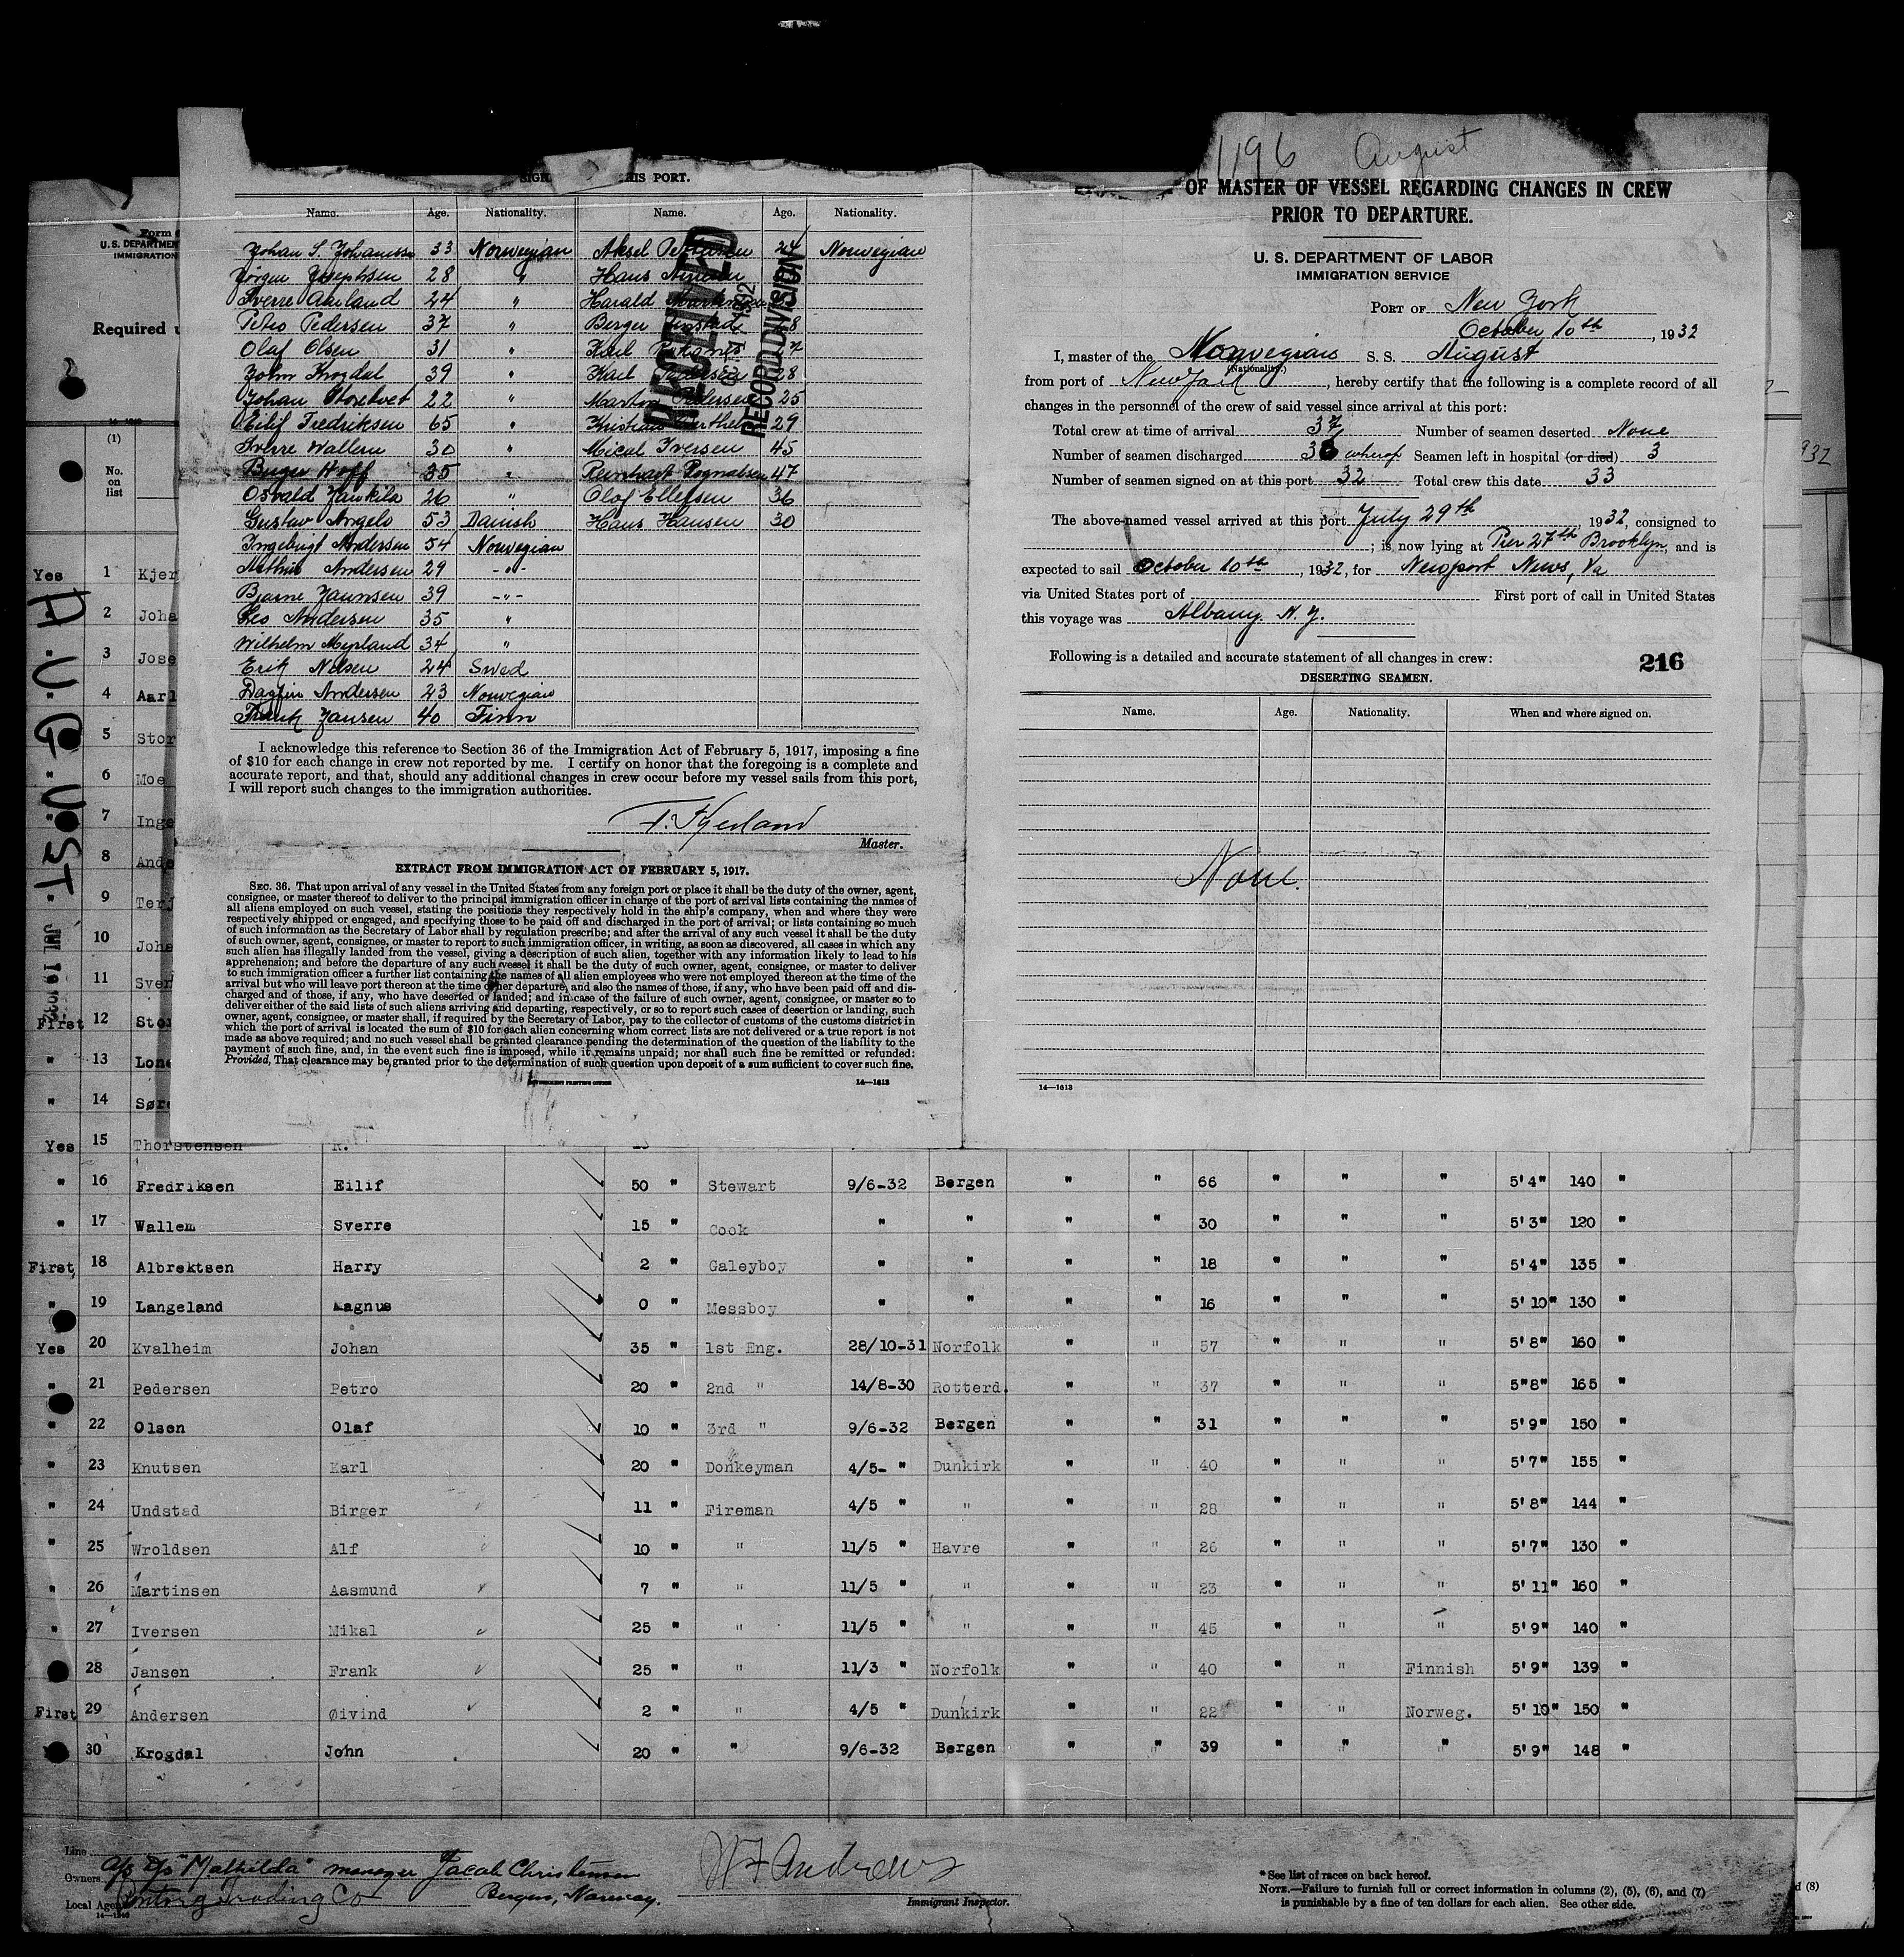 1196 August
SIGN HIS PORT.
Name. Age. Nationality. Name. Age. Nationality.
Johan S. Johanssen 33 Norwegian Aksel 24 Norwegian
Jørgen Josephsen 28 " Hans
Sverre Aarland 24 " Harald
Petro Pedersen 37 " Berger 8
Olaf Olsen 31 " Karl 7
John Krogdal 39 " Karl Pedersen 28
Johan Storetvet 22 " Martin Pedersen 25
Eilif Fredriksen 65 " Kristian 29
Sverre Wallem 30 " Mical Iversen 45
Birger Hoff 35 " Reinhart Rognalsen 47
Osvald 26 " Olaf Ellefsen 36
Gustav Angelo 53 Danish Hans Hansen 30
Ingebrigt Andersen 54 Norwegian
Arthur Andersen 29 -"-
Bjarne Jaunsen 39 -"-
Leo Andersen 35 "
Wilhelm Myrland 34 "
Erik Nilsen 24 Swed
Dagfin Andersen 23 Norwegian
Frank Jansen 40 Finn
RECEIVED
OCT 1932
RECORD DIVISION
I acknowledge this reference to Section 36 of the Immigration Act of February 5, 1917, imposing a fine
of $10 for each change in crew not reported by me. I certify on honor that the foregoing is a complete and
accurate report, and that, should any additional changes in crew occur before my vessel sails from this port,
I will report such changes to the immigration authorities.
Master.
EXTRACT FROM IMMIGRATION ACT OF FEBRUARY 5, 1917.
SEC. 36. That upon arrival of any vessel in the United States from any foreign port or place it shall be the duty of the owner, agent,
consignee, or master thereof to deliver to the principal immigration officer in charge of the port of arrival lists containing the names of
all aliens employed on such vessel, stating the positions they respectively hold in the ship's company, when and where they were
respectively shipped or engaged, and specifying those to be paid off and discharged in the port of arrival; or lists containing so much
of such information as the Secretary of Labor shall by regulation prescribe; and after the arrival of any such vessel it shall be the duty
of such owner, agent, consignee, or master to report to such immigration officer, in writing, as soon as discovered, all cases in which any
such alien has illegally landed from the vessel, giving a description of such alien, together with any information likely to lead to his
apprehension; and before the departure of any such vessel it shall be the duty of such owner, agent, consignee, or master to deliver
to such immigration officer a further list containing the names of all alien employees who were not employed thereon at the time of the
arrival but who will leave port thereon at the time of her departure, and also the names of those, if any, who have been paid off and dis-
charged and of those, if any, who have deserted or landed; and in case of the failure of such owner, agent, consignee, or master so to
deliver either of the said lists of such aliens arriving and departing, respectively, or so to report such cases of desertion or landing, such
owner, agent, consignee, or master shall, if required by the Secretary of Labor, pay to the collector of customs of the customs district in
which the port of arrival is located the sum of $10 for each alien concerning whom correct lists are not delivered or a true report is not
made as above required; and no such vessel shall be granted clearance pending the determination of the question of the liability to the
payment of such fine, and, in the event such fine is imposed, while it remains unpaid; nor shall such fine be remitted or refunded:
Provided, That clearance may be granted prior to the determination of such question upon deposit of a sum sufficient to cover such fine.
GOVERNMENT PRINTING OFFICE 14—1613
OF MASTER OF VESSEL REGARDING CHANGES IN CREW
PRIOR TO DEPARTURE.
U. S. DEPARTMENT OF LABOR
IMMIGRATION SERVICE
PORT OF New York
October 10th, 1932
I, master of the Norwegian S. S. August
(Nationality.)
from port of New York, hereby certify that the following is a complete record of all
changes in the personnel of the crew of said vessel since arrival at this port:
Total crew at time of arrival 37 Number of seamen deserted None
Number of seamen discharged 36 whereof Seamen left in hospital (or died) 3
Number of seamen signed on at this port 32 Total crew this date 33
The above-named vessel arrived at this port July 29th 1932, consigned to
; is now lying at Pier 27th Brooklyn and is
expected to sail October 10th, 1932, for Newport News, Va
via United States port of First port of call in United States
this voyage was Albany. N. Y.
Following is a detailed and accurate statement of all changes in crew: 216
DESERTING SEAMEN.
Name. Age. Nationality. When and where signed on.
None.
14—1613
Form
U. S. DEPARTMENT
IMMIGRATION
Required
(1)
No. on list
AUGUST
Yes 1 Kjer
2 Joha
3 Jose
4 Aarl
5 Stor
6 Moe
7 Inge
8 Ande
9 Terj
10 Joha
11 Sver
First 12 Stor
" 13 Lone
" 14 Søre
Yes 15 Thorstensen R.
" 16 Fredriksen Eilif 50 " Stewart 9/6-32 Bergen " " 66 " " " 5'4" 140 "
" 17 Wallem Sverre 15 " Cook " " " " 30 " " " 5'3" 120 "
First 18 Albrektsen Harry 2 " Galeyboy " " " " 18 " " " 5'4" 135 "
" 19 Langeland Magnus 0 " Messboy " " " " 16 " " " 5'10" 130 "
Yes 20 Kvalheim Johan 35 " 1st Eng. 28/10-31 Norfolk " " 57 " " " 5'8" 160 "
" 21 Pedersen Petro 20 " 2nd " 14/8-30 Rotterd. " " 37 " " " 5"8" 165 "
" 22 Olsen Olaf 10 " 3rd " 9/6-32 Bergen " " 31 " " " 5'9" 150 "
" 23 Knutsen Karl 20 " Donkeyman 4/5- " Dunkirk " " 40 " " " 5'7" 155 "
" 24 Undstad Birger 11 " Fireman 4/5 " " " " 28 " " " 5'8" 144 "
" 25 Wroldsen Alf 10 " " 11/5 " Havre " " 26 " " " 5'7" 130 "
" 26 Martinsen Aasmund 7 " " 11/5 " " " " 23 " " " 5'11" 160 "
" 27 Iversen Mikal 25 " " 11/5 " " " " 45 " " " 5'9" 140 "
28 Jansen Frank 25 " " 11/3 " Norfolk " " 40 " " Finnish 5'9" 139 "
First 29 Andersen Øivind 2 " " 4/5 " Dunkirk " " 22 " " Norweg. 5'10" 150 "
30 Krogdal John 20 " " 9/6-32 Bergen " " 39 " " " 5'9" 148 "
Line
Owners A/S D/S "Mathilda" manager Jacob Christensen
Bergen, Norway.
Local Agent Trading Co
14—1240
W F Andrews
Immigrant Inspector.
* See list of races on back hereof.
NOTE.—Failure to furnish full or correct information in columns (2), (5), (6), and (7)
is punishable by a fine of ten dollars for each alien. See other side.
d (8)
932